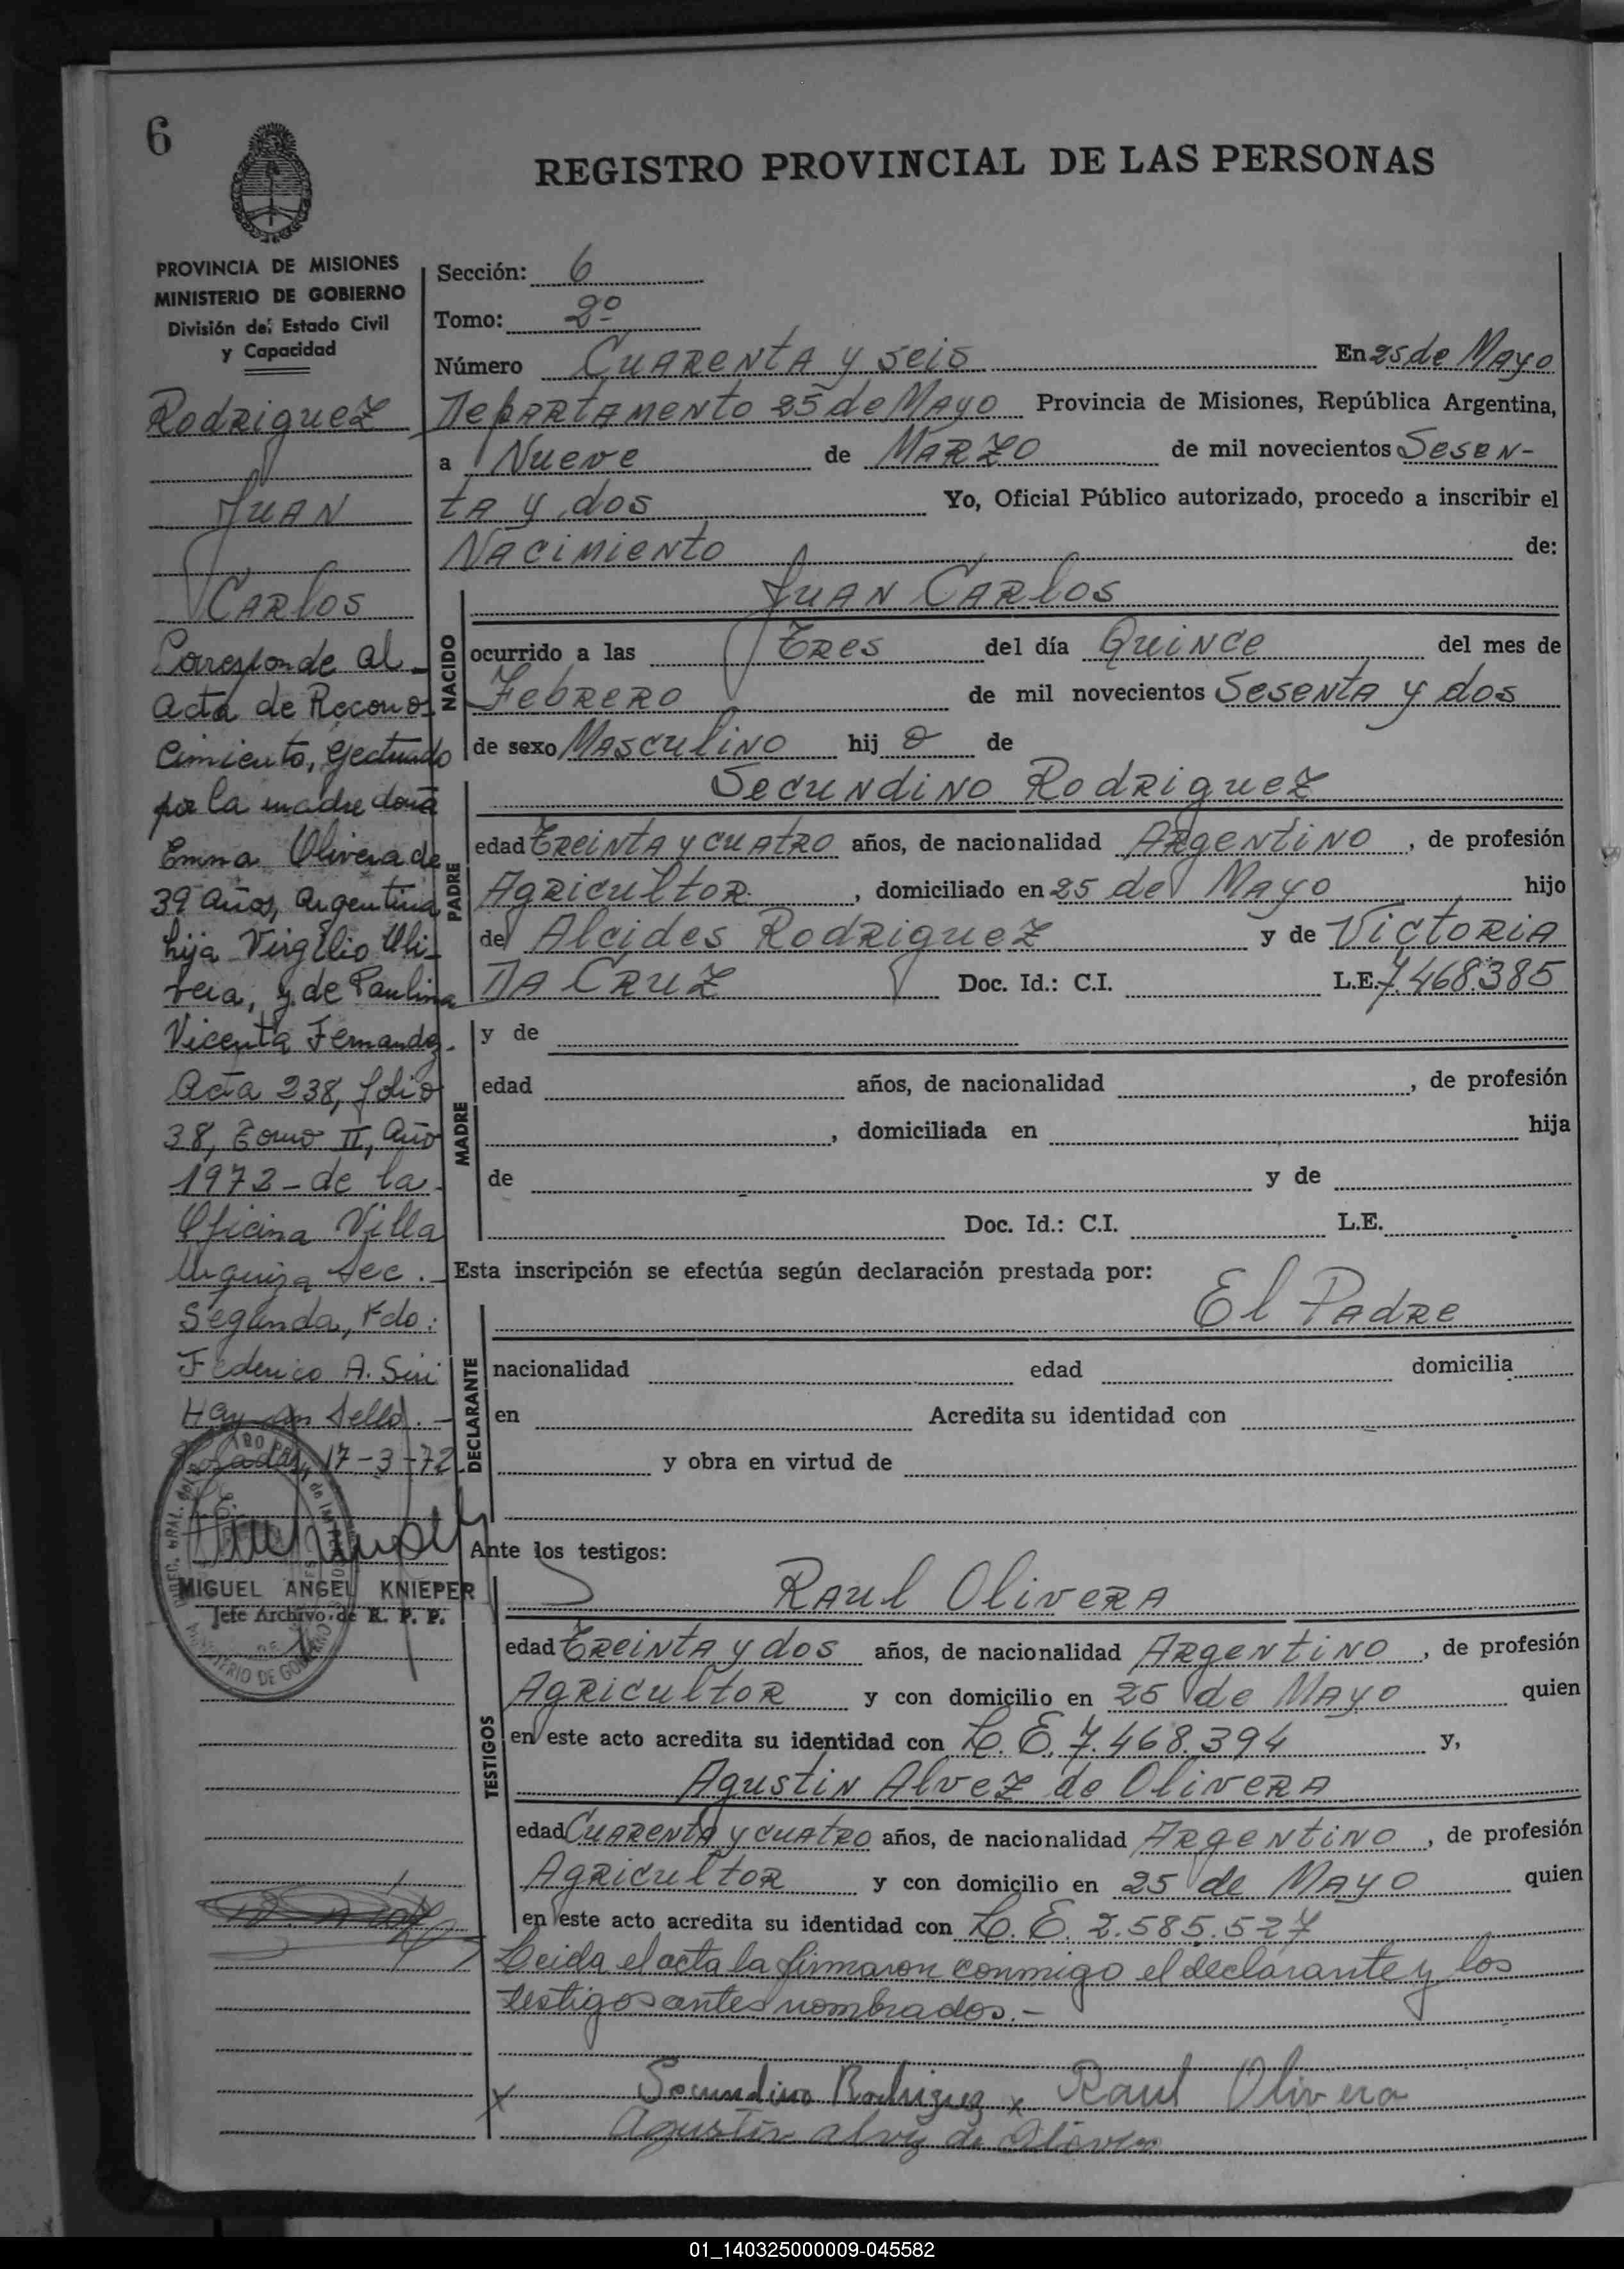 6
REGISTRO PROVINCIAL DE LAS PERSONAS
PROVINCIA DE MISIONES
MINISTERIO DE GOBIERNO
División del Estado Civil
y Capacidad
Rodriguez
Juan
Carlos
Corresponde al
acta de Recono
cimiento, efectuado
por la madre doña
Emma Olivera de
39 años, argentina
hija Virgilio Oli-
vera, y de Paulina
Vicenta Fernandez.
Acta 238, folio
38, Tomo II, Año
1972 - de la
Oficina Villa
Urquiza Sec. -
Segunda, Fdo:
Federico A. Siri
Hay un sello. -
Posadas, 17-3-72
MIGUEL ANGEL KNIEPER
Jefe Archivo de R. P. P.
Sección: 6
Tomo: 2º
Número Cuarenta y seis En 25 de Mayo
Departamento 25 de Mayo Provincia de Misiones, República Argentina,
a Nueve de Marzo de mil novecientos Sesen-
ta y dos Yo, Oficial Público autorizado, procedo a inscribir el
Nacimiento de:
Juan Carlos
NACIDO
ocurrido a las Tres del día Quince del mes de
Febrero de mil novecientos Sesenta y dos
de sexo Masculino hijo de
Secundino Rodriguez
PADRE
edad Treinta y cuatro años, de nacionalidad Argentino, de profesión
Agricultor, domiciliado en 25 de Mayo hijo
de Alcides Rodriguez y de Victoria
Da Cruz Doc. Id.: C.I. L.E. 7.468.385
y de
MADRE
edad años, de nacionalidad , de profesión
, domiciliada en hija
de y de
Doc. Id.: C.I. L.E.
Esta inscripción se efectúa según declaración prestada por:
El Padre
DECLARANTE
nacionalidad edad domicilia
en Acredita su identidad con
y obra en virtud de
Ante los testigos:
Raul Olivera
TESTIGOS
edad Treinta y dos años, de nacionalidad Argentino, de profesión
Agricultor y con domicilio en 25 de Mayo quien
en este acto acredita su identidad con L. E. 7.468.394 y,
Agustin Alvez de Olivera
edad Cuarenta y cuatro años, de nacionalidad Argentino, de profesión
Agricultor y con domicilio en 25 de Mayo quien
en este acto acredita su identidad con L. E. 2.585.527
Leida el acta la firmaron conmigo el declarante y los
testigos antes nombrados. -
x Secundino Rodriguez x Raul Olivera
Agustin alvez de Olivera
01_140325000009-045582